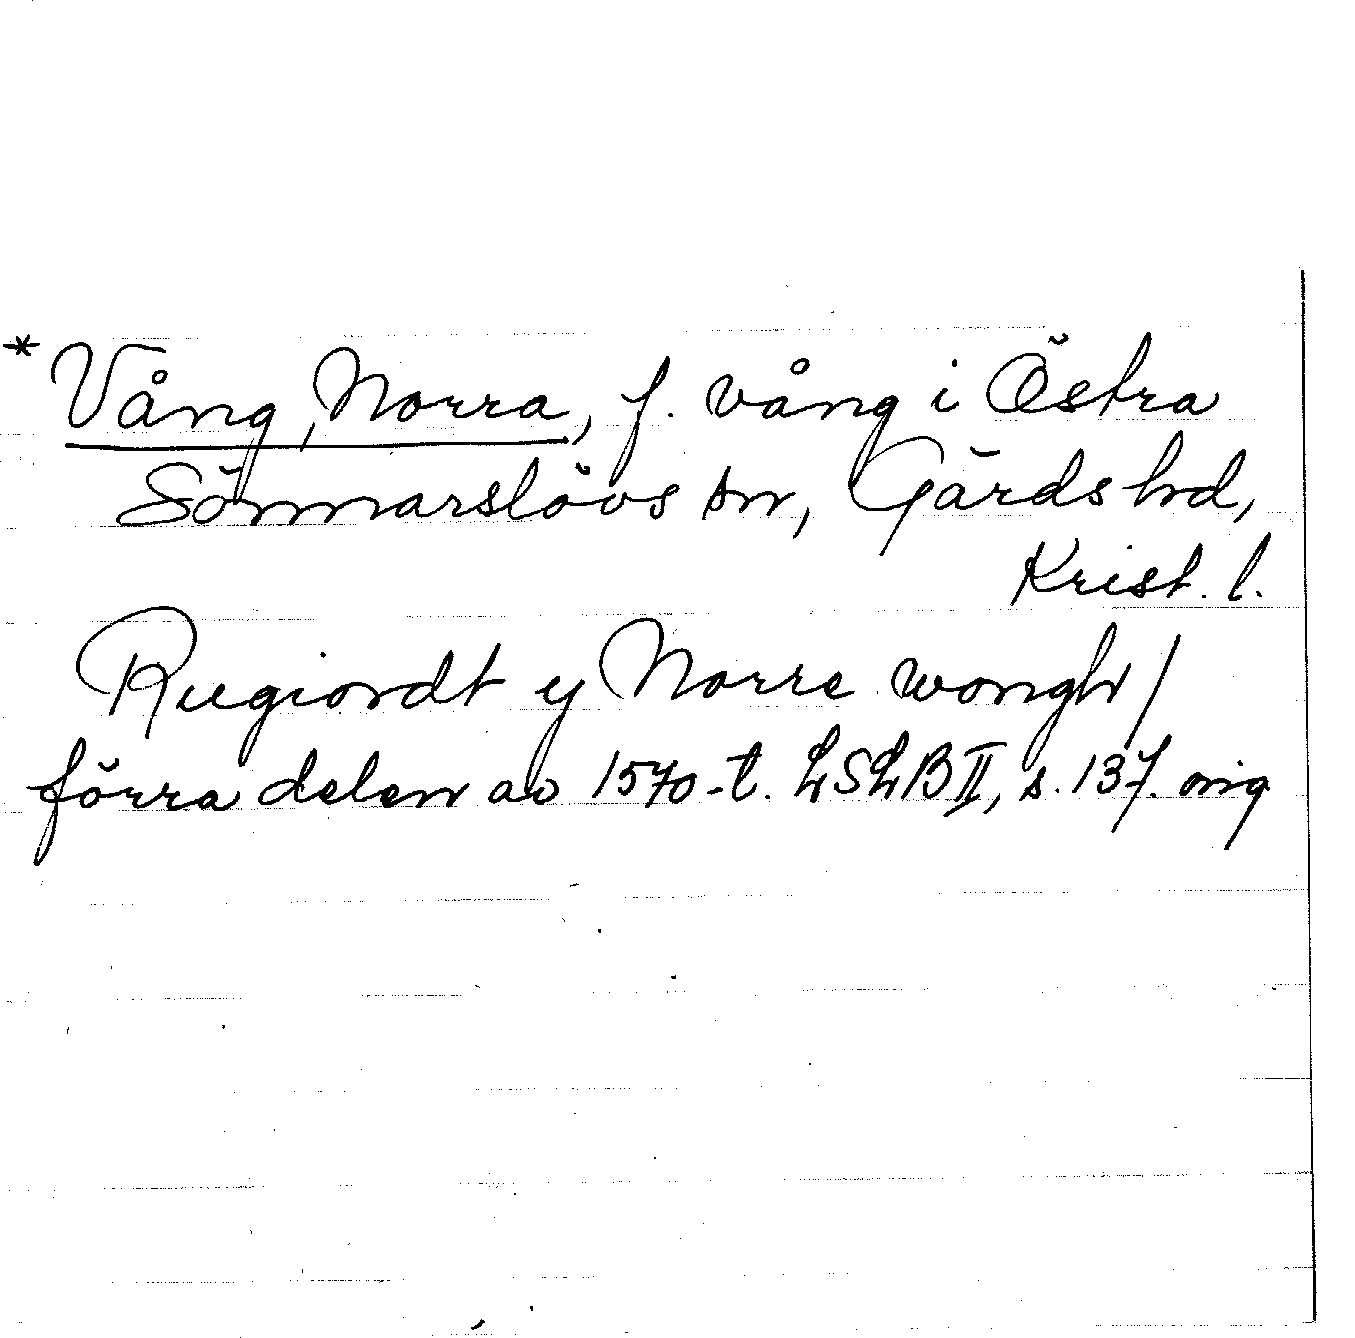 * Vång, Norra, f. vång i Östra
Sönnarslövs sn, Gärds hd,
Krist. l.
Rugiordt y Norre wongh/
förra delen av 1570-t. LSLB II, s. 137. orig